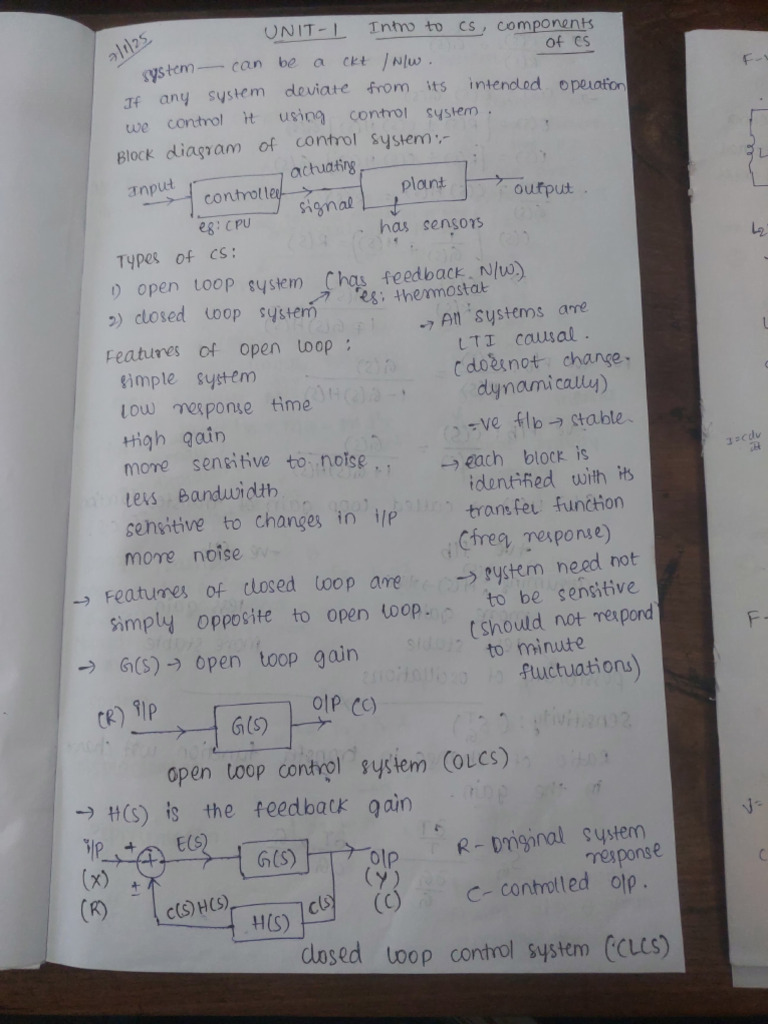 7/1/25
UNIT-1 Intro to cs, components
of cs
system — can be a ckt / N/W.
If any system deviate from its intended operation
we control it using control system.
Block diagram of control system:-
Input
controller
actuating
signal
plant
output.
eg: CPU
has sensors
Types of cs:
1) open loop system (has feedback N/W)
2) closed loop system
eg: thermostat
Features of open loop:
simple system
Low response time
High gain
more sensitive to noise.
Less Bandwidth
sensitive to changes in i/p
more noise
→ All systems are
LTI causal.
(doesnot change
dynamically)
-ve f/b → stable.
→ each block is
identified with its
transfer function
(freq response)
→ system need not
to be sensitive
(should not respond
to minute
fluctuations)
→ Features of closed loop are
simply opposite to open loop.
→ G(S) → open loop gain
(R) i/p
G(S)
O/P (C)
open loop control system (OLCS)
→ H(S) is the feedback gain
i/p
(X)
(R)
+
+
±
E(S)
G(S)
O/P
(Y)
(C)
C(S)H(S)
H(S)
C(S)
R - Original system
response
C - controlled O/P.
closed loop control system (CLCS)
F-
L2
I=Cdv
dt
F-
V=
C